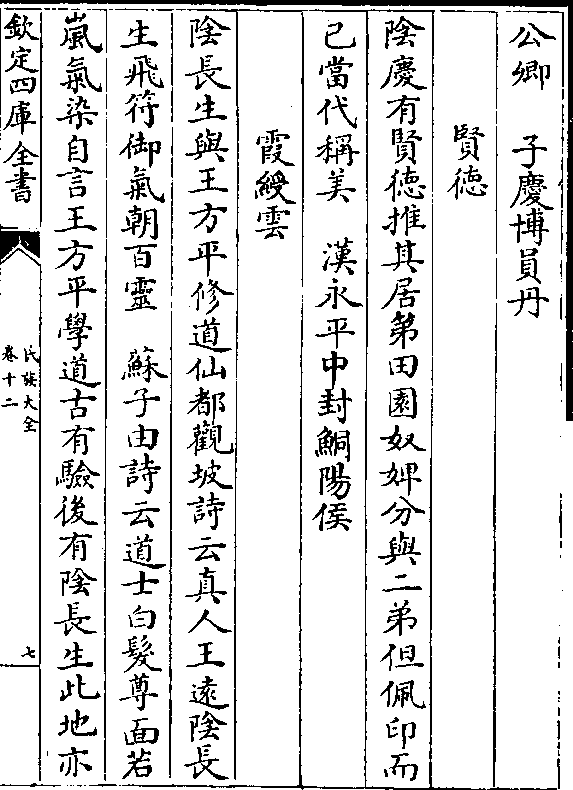 公卿　子慶博員丹
賢徳
隂慶有賢徳推其居第田園奴婢分與二弟但佩印而
已當代稱美　漢永平中封鮦陽侯
霞綬雲
隂長生與王方平修道仙都觀坡詩云真人王遠隂長
生飛符御氣朝百靈　蘇子由詩云道士白髮尊面若
嵐氣染自言王方平學道古有驗後有隂長生此地亦
欽定四庫全書
氏族大全
卷十二
七